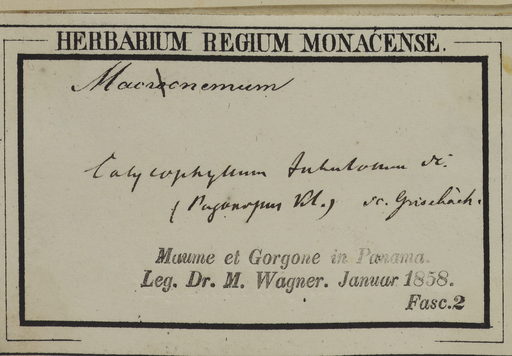 HERBARIUM REGIUM MONACENSE.
Macrocnemum
Calycophyllum tubulosum DC.
(Pogonopus Kl.) sc. Grisebach.
Maume et Gorgone in Panama.
Leg. Dr. M. Wagner. Januar 1858.
Fasc.2